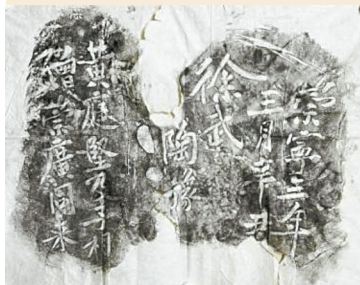 崇寧三年
三月辛丑
徐武
陶豫
黃庭堅
僧崇廣同來